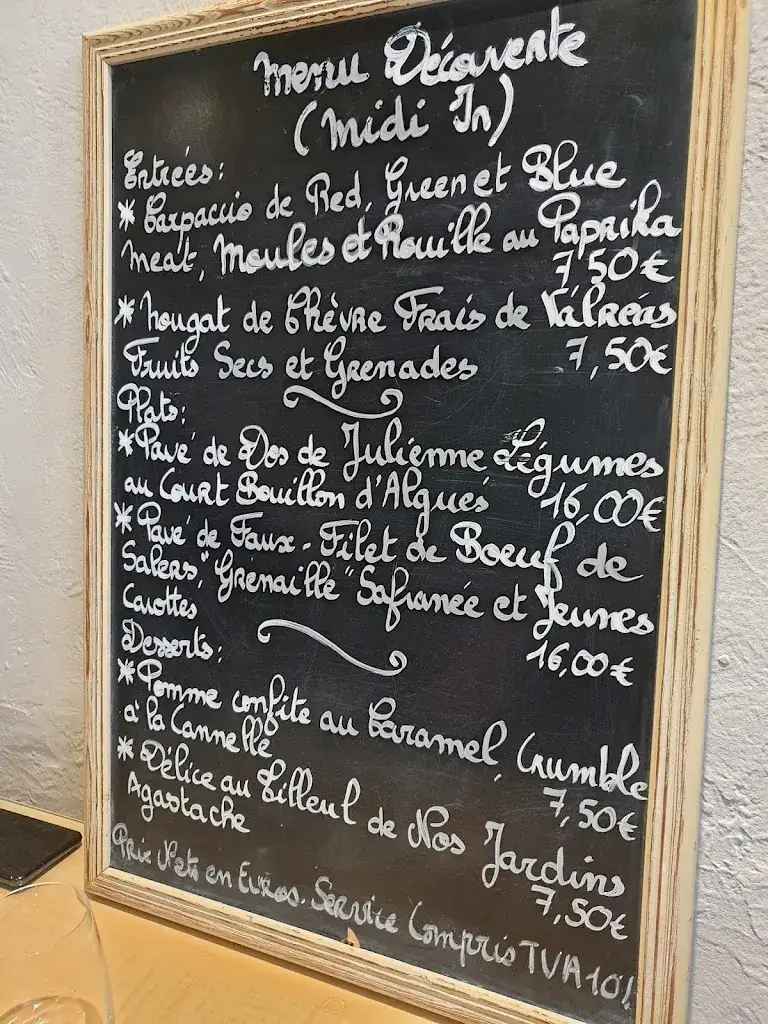 Menu Découverte
(Midi In)
Entrées:
* Carpaccio de Red, Green et Blue
Meat, Moules et Rouille au Paprika
7,50€
* Nougat de Chèvre Frais de Valréas
Fruits Secs et Grenades 7,50€
Plats:
* Pavé de Dos de Julienne Légumes
au Court Bouillon d'Algues 16,00€
* Pavé de Faux-Filet de Boeuf de
Salers, "Grenaille" Safranée et Jeunes
Carottes 16,00€
Desserts:
* Pomme confite au Caramel, Crumble
à la Cannelle 7,50€
* Délice au Tilleul de Nos Jardins
Agastache 7,50€
Prix Nets en Euros. Service Compris TVA 10%